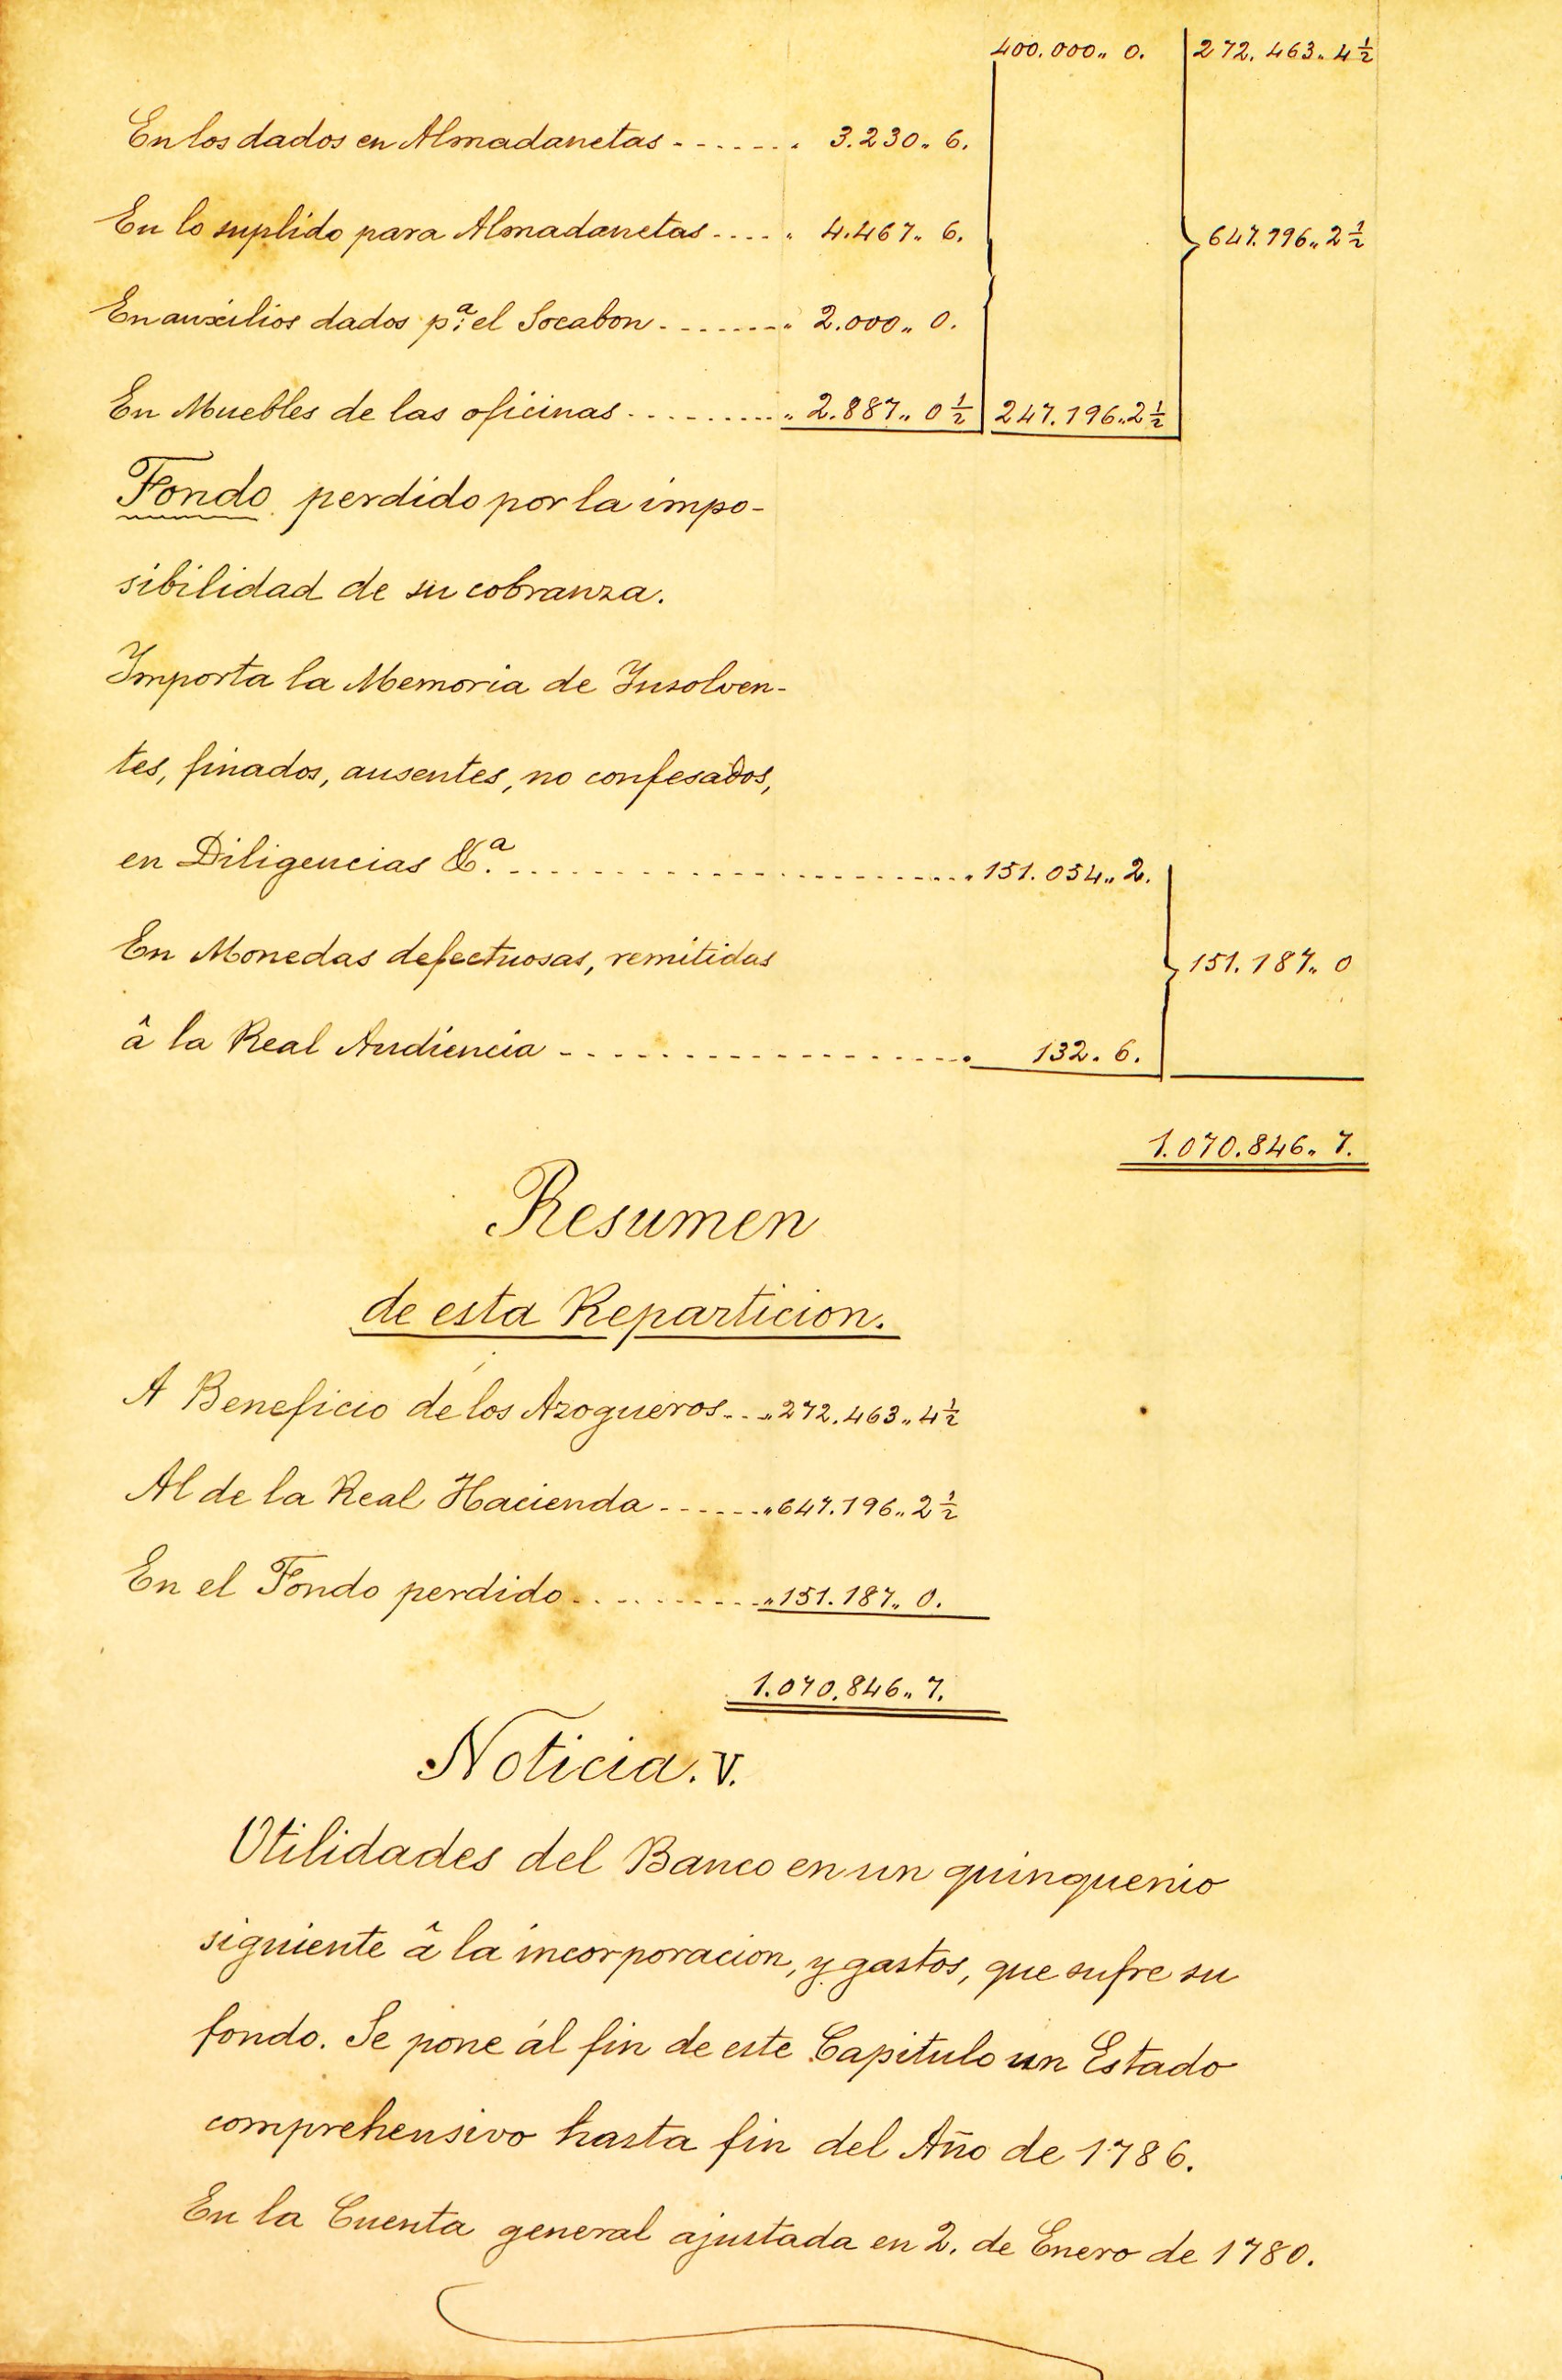 400.000.. 0. 272.463.. 4 1/2
En los dados en Almadanetas ------- 3.230.. 6.
En lo suplido para Almadanetas ---- 4.467.. 6. 647.196.. 2 1/2
En auxilios dados pª. el Socabon ------- 2.000.. 0.
En Muebles de las oficinas --------- 2.887.. 0 1/2 247.196.. 2 1/2
Fondo perdido por la impo-
sibilidad de su cobranza.
Importa la Memoria de Insolven-
tes, finados, ausentes, no confesados,
en Diligencias &ª. ---------------------- 151.054.. 2.
En Monedas defectuosas, remitidas 151.187.. 0
â la Real Audiencia ------------------- 132. 6.
1.070.846.. 7.
Resumen
de esta Reparticion.
A Beneficio de los Azogueros --- 272.463.. 4 1/2
Al de la Real Hacienda ------ 647.196.. 2 1/2
En el Fondo perdido ---------- 151.187.. 0.
1.070.846.. 7.
Noticia. V.
Utilidades del Banco en un quinquenio
siguiente â la incorporacion, y gastos, que sufre su
fondo. Se pone ál fin de este Capitulo un Estado
comprehensivo hasta fin del Año de 1786.
En la Cuenta general ajustada en 2. de Enero de 1780.